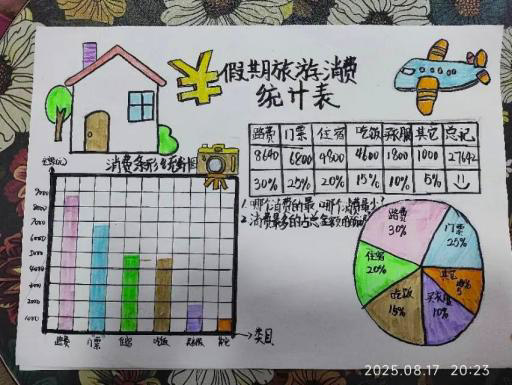 假期旅游消费
统计表
路费 门票 住宿 吃饭 买衣服 其它 总记
8640 6800 9800 4600 1800 1000 27642
30% 25% 20% 15% 10% 5%
消费条形统计图
1. 哪个消费的最 哪个消费最少
2. 消费最多的占总金额的
9000
8000
7000
6000
5000
4000
3000
2000
1000
路费 门票 住宿 吃饭 其它
类目
路费
30%
门票
25%
住宿
20%
其它
吃饭
15%
买衣服
10%
2025.08.17 20:23